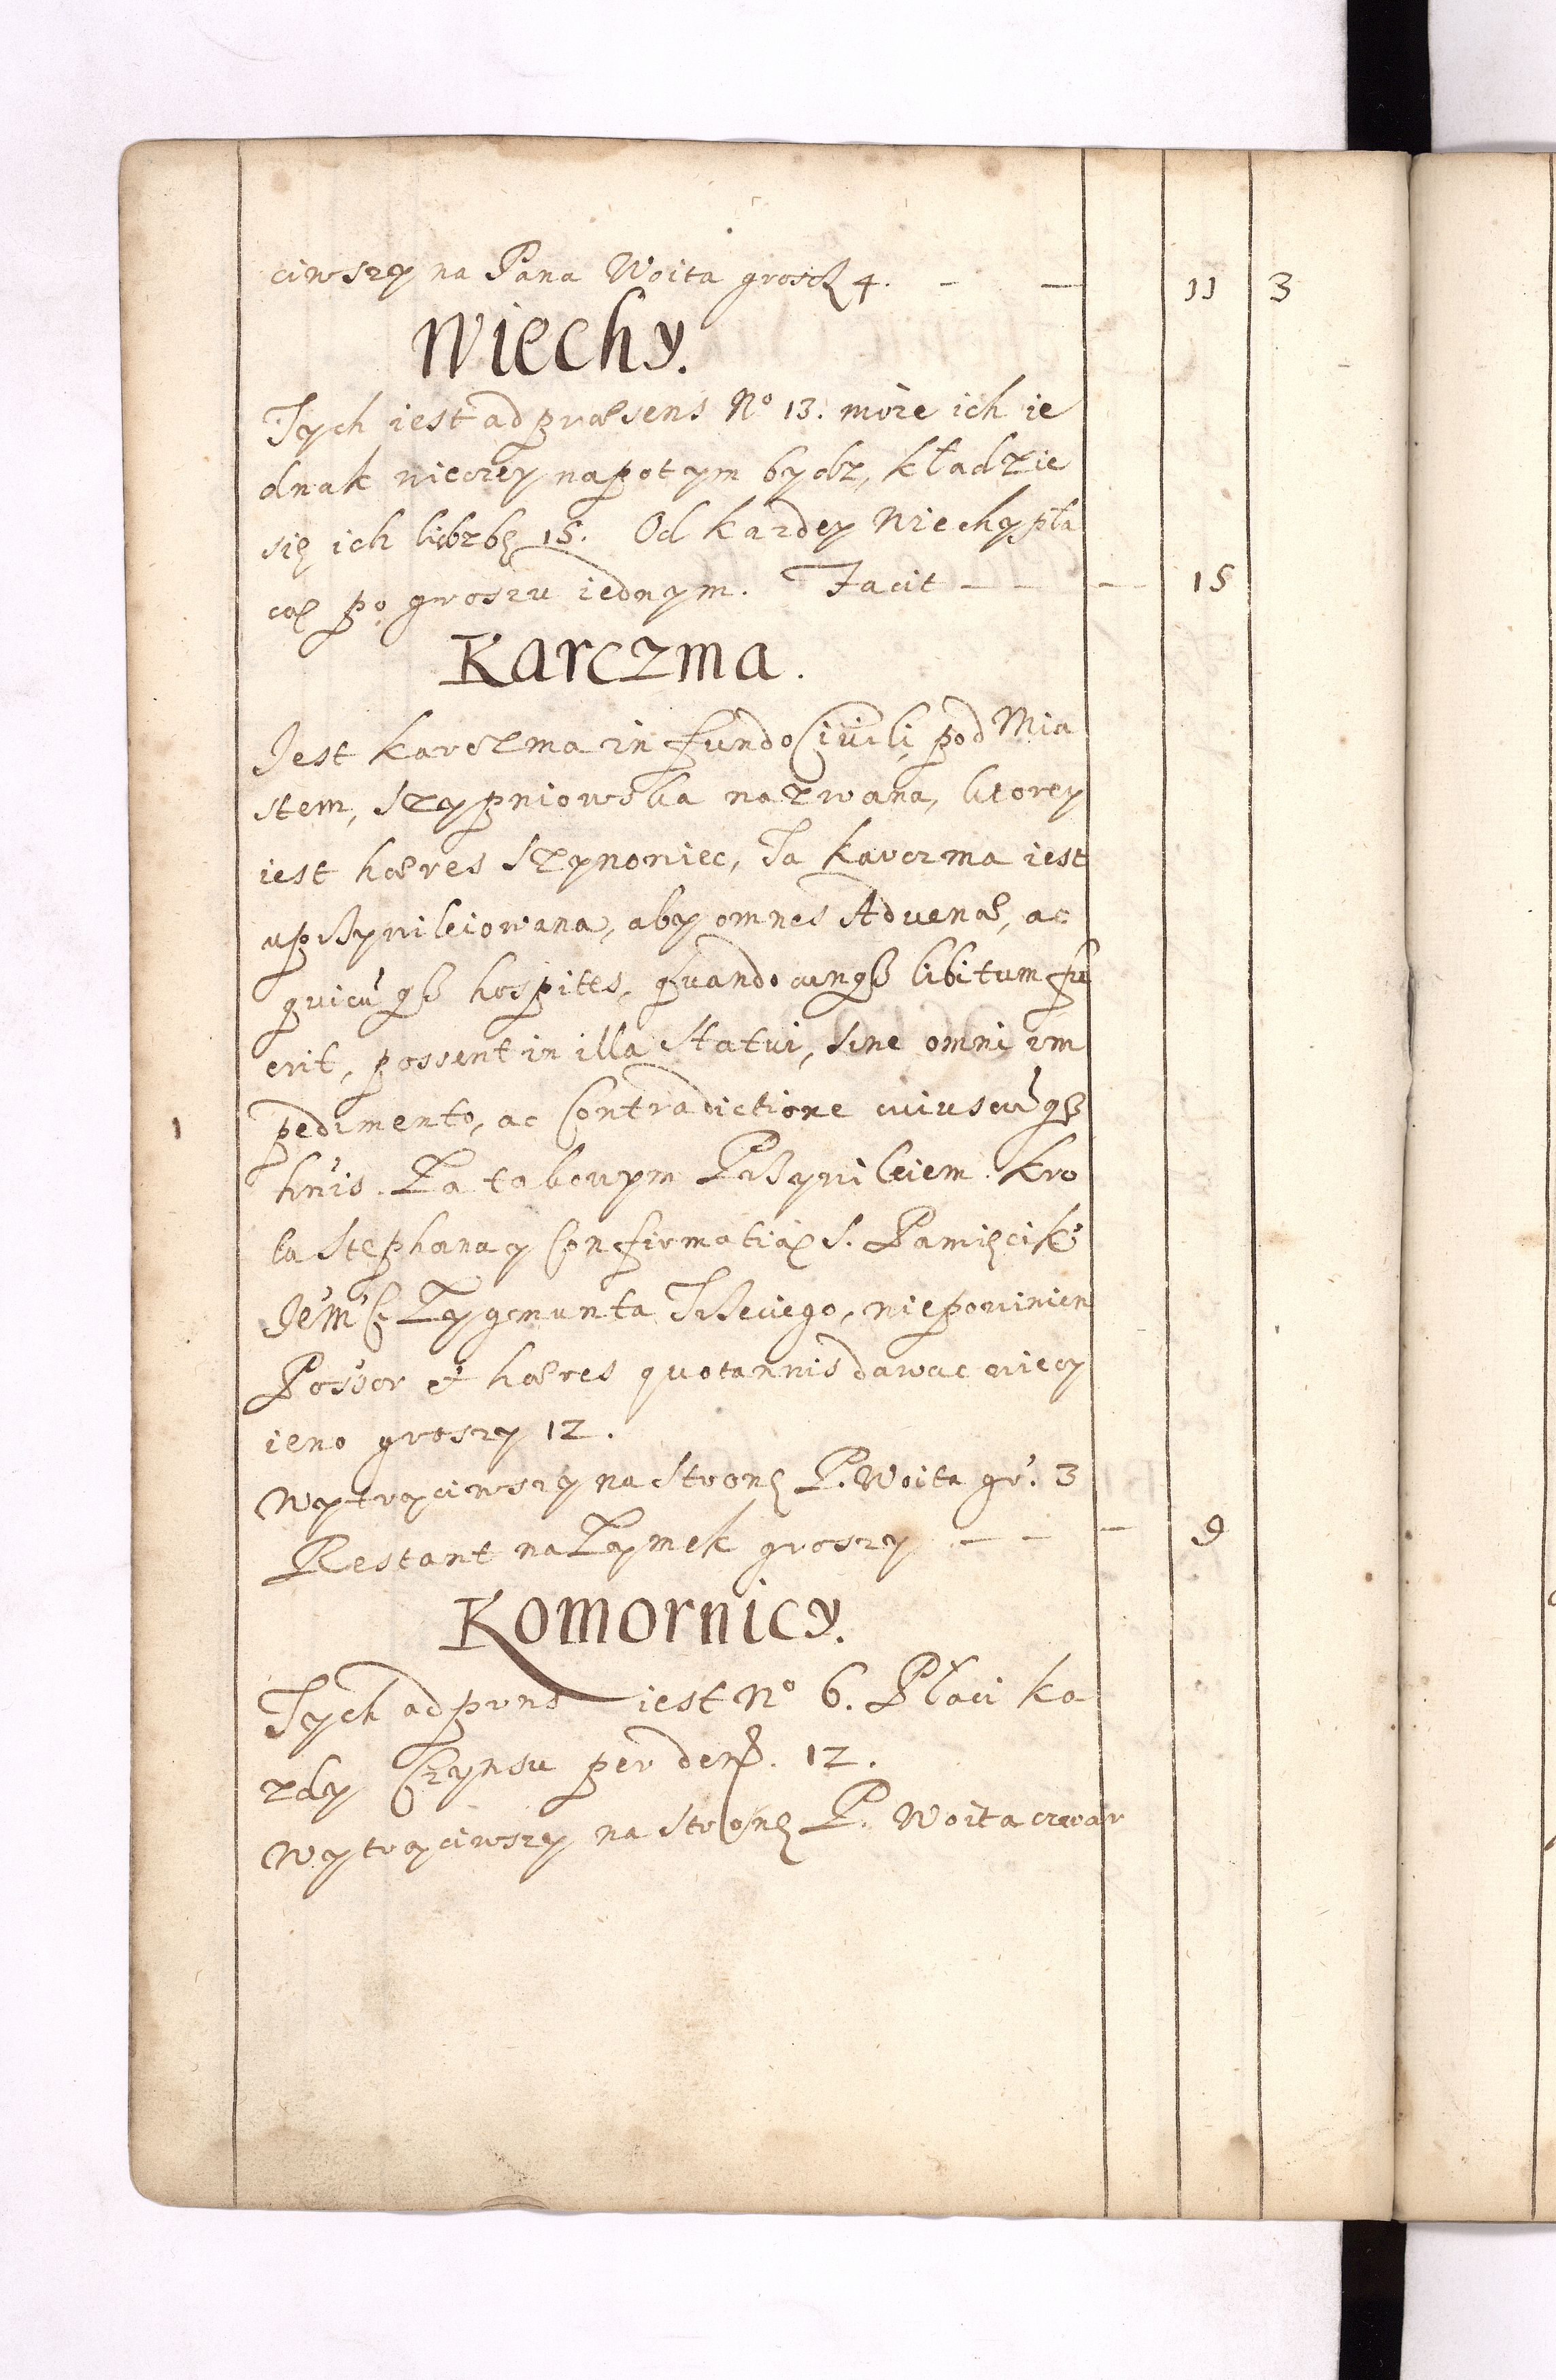 ciwszy na Pana Woita grosch 4. — — 11 3
Wiechy.
Tych iest ad præsens No 13. może ich ie
dnak wieczey napotym bydz, kładzie
się ich liczbę 15. Od kazdey Wiechy pła
cą po groszu iednym. Facit — — — 15
Karczma.
Jest karczma in fundo Civili, pod Mia
stem, Szypniowska nazwana, ktorey
iest hæres Szynowiec, Ta karczma iest
uprzywileiowana, aby omnes Advenæ, ac
quicuqs hospites, quandocunqs libitum fu
erit, possent in illa Statui, sine omni im
pedimento, ac Contradictione cuiuscuqs
hnis. Za takowym Przywileiem Kro
la Stephana y Confirmatią S. Pamięci K
JeM Zygmunta Trzeciego, niepowinien
Possor et hæres quotannis dawac wiecy
ieno groszy 12.
Wytrąciwszy na Stronę P. Woita gr. 3
Restant na Zamek groszy — — — 9
Komornicy.
Tych ad prns iest No 6. Płaci ka
zdy Czynsu per den. 12.
Wytrąciwszy na Stronę P. Woita czwar